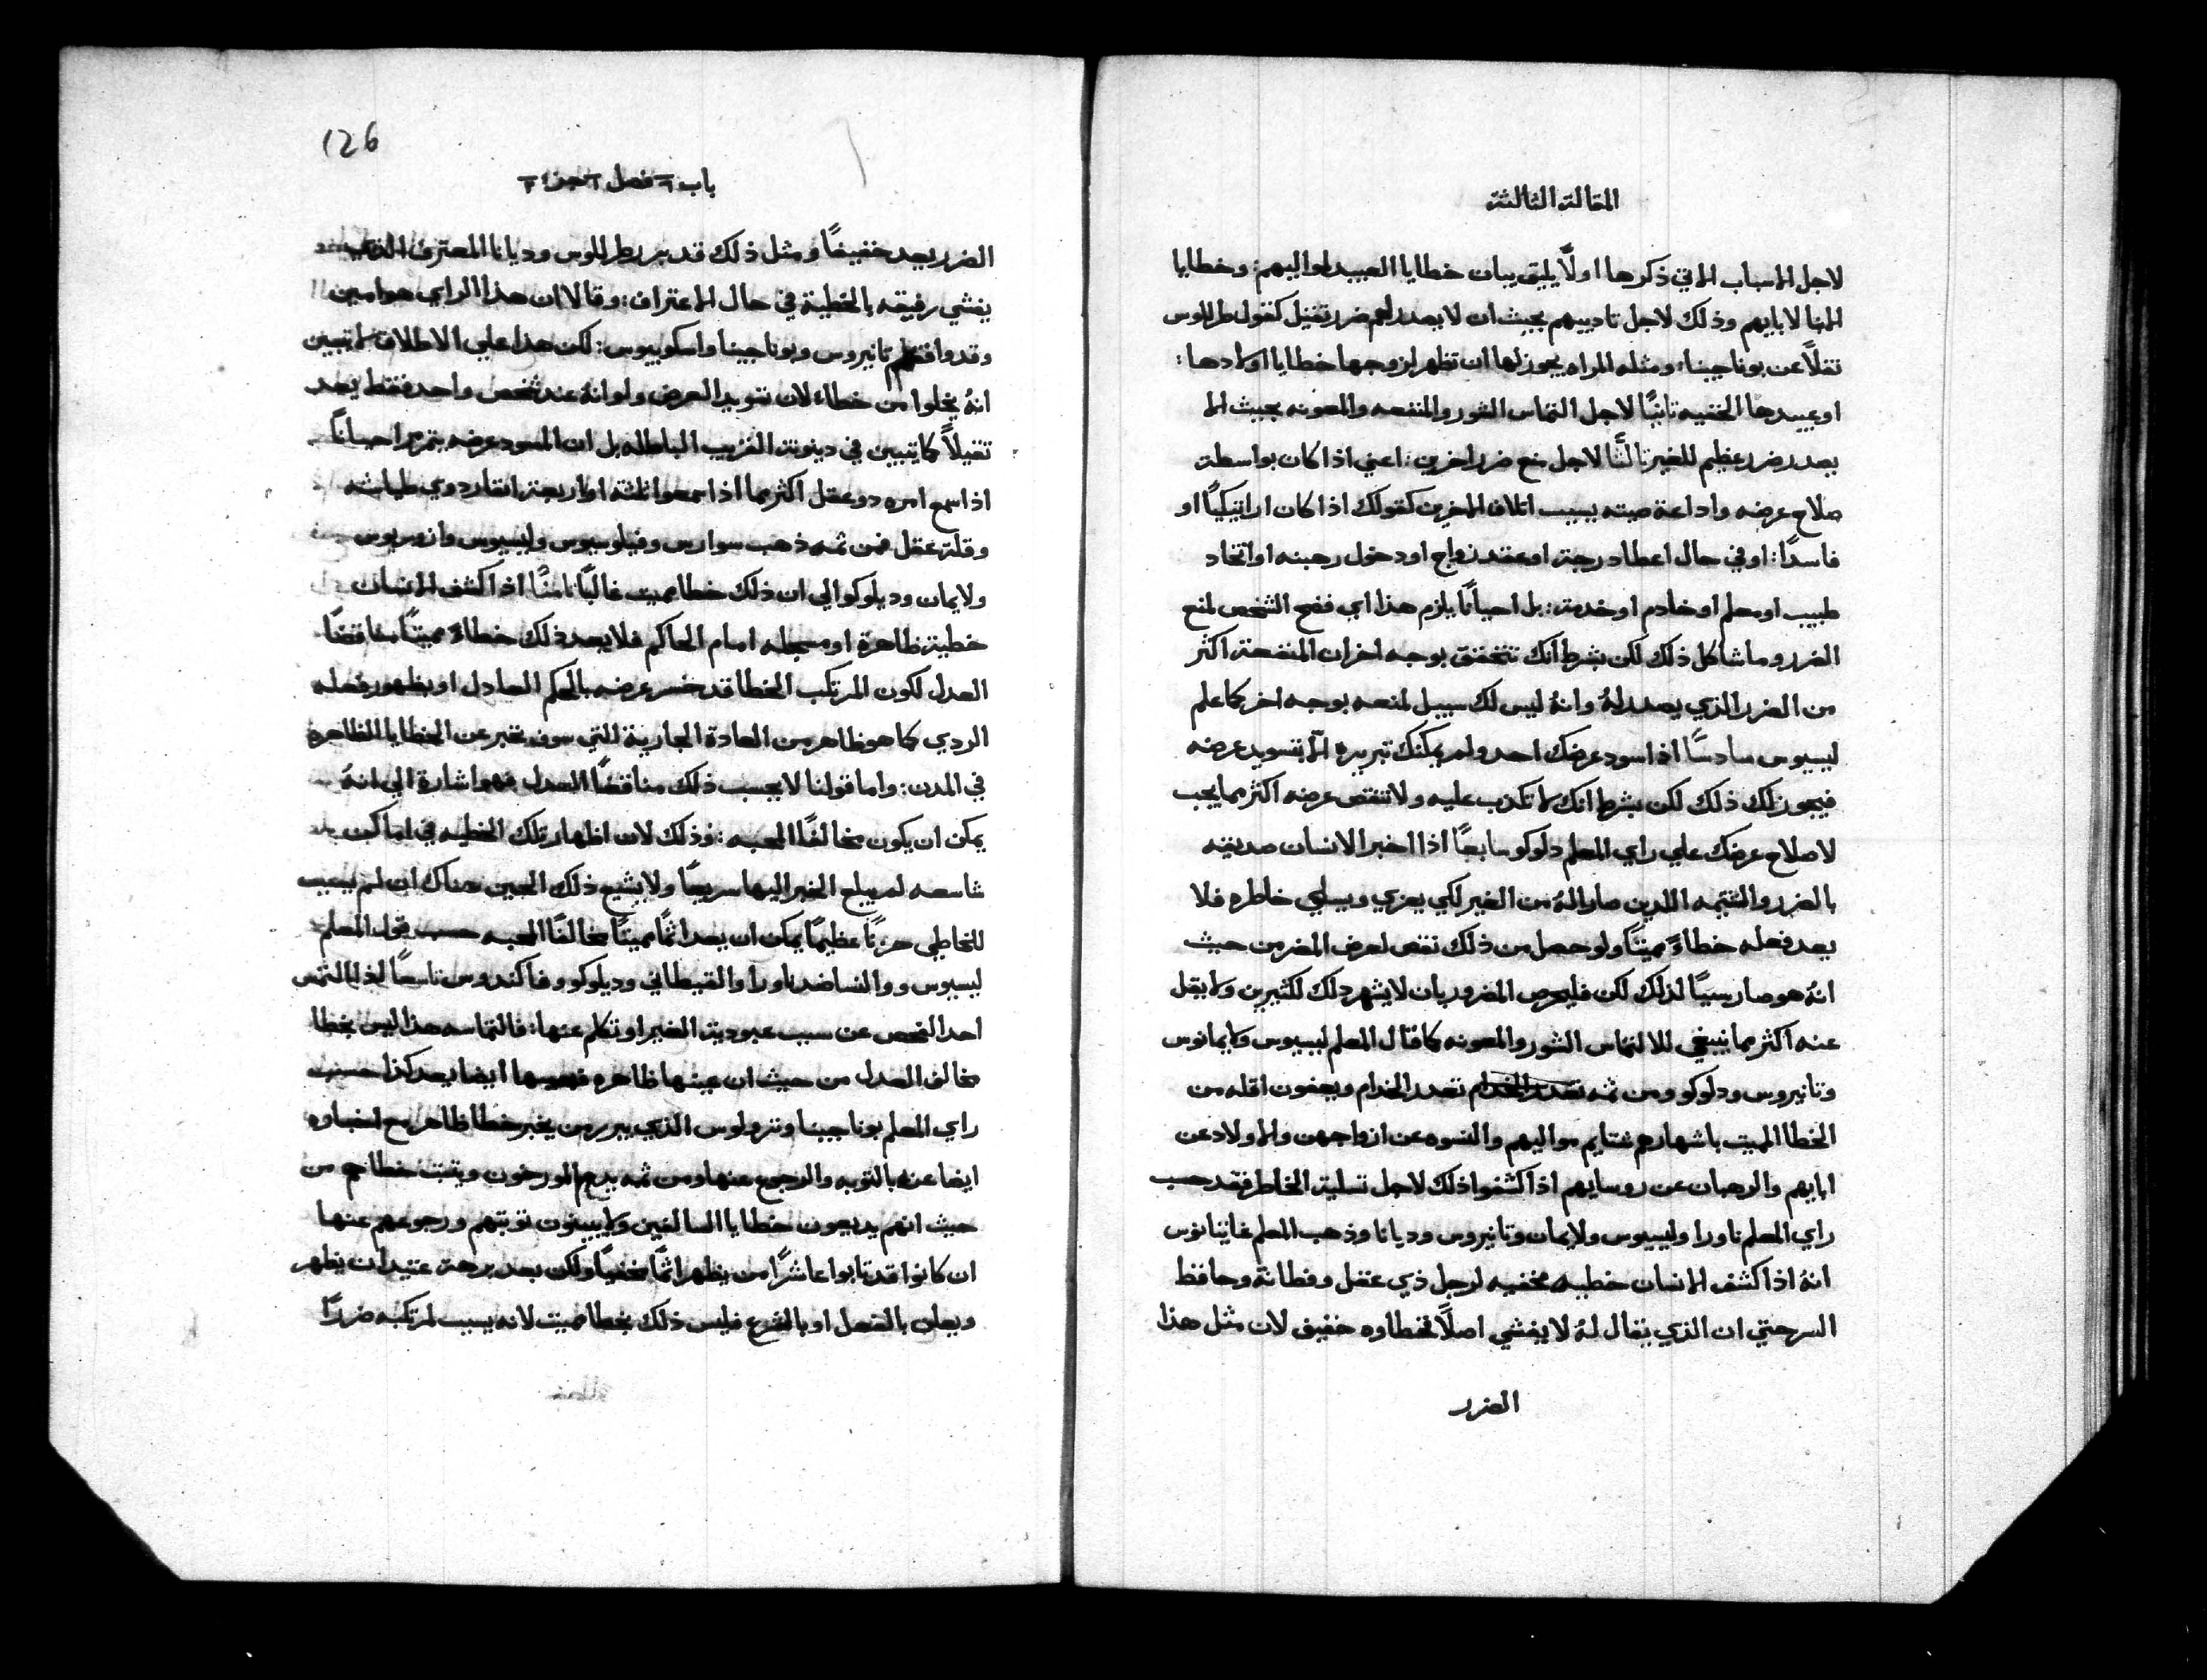 المقالة الثالثة
لاجل الاسباب التي ذكرها اولاً يليق بيان خطايا العبيد لمواليهم: وخطايا
الابنا لابايهم وذلك لاجل تاديبهم بحيث ان لا يصدر لهم ضرر ثقيل كقول طرللوس
نقلاً عن بوناجينا: ومثله المراه يجوز لها ان تظهر لزوجها خطايا اولادها:
او عبيدها الخفيه ثانيًا لاجل التماس الشور والمنفعه والمعونه بحيث لا
يصدر ضرر عظيم للغير ثالثًا لاجل منع ضرر اخرين: اعني اذا كان بواسطة
صلاح عرضه واداعة صيته يسبب اتلاف الاخرين كقولك اذا كان اراتيكيًا او
فاسدًا: او في حال اعطا درجة او عقد زواج او دخول رهبنه او اتخاد
طبيب او معلم او خادم او خدمة: بل احيانًا يلزم هذا اي فضح الشخص لمنع
الضرر وما شاكل ذلك لكن بشرط انك تتحقق بوجه اخر ان المنفعة اكثر
من الضرر الذي يصدر له وانه ليس لك سبيل لمنعه بوجه اخر كما علم
ليسيوس سادسًا اذا سود عرضك احد ولم يمكنك تبريره الا بتسويد عرضه
فيجوز لك ذلك لكن بشرط انك لا تكذب عليه ولا تنقص عرضه اكثر مما يجب
لاصلاح عرضك علي راي المعلم دلوكو سابعًا اذا اخبر الانسان صديقه
بالضرر والشتيمه اللدين صارا له من الغير لكي يعزي ويسلي خاطره فلا
يعد فعله خطاءً مميتًا ولو حصل من ذلك نقص لعرض المضر من حيث
انه هو صار سببًا لذلك لكن فليحرص المضرور بان لا يشهر دلك لكثيرين ولا يقل
عنه اكثر مما ينبغي للالتماس الشور والمعونه كما قال المعلم ليسيوس ولايمانوس
وتانيروس ودلوكو ومن ثمه تعدر الخدام ويعفون اقله من
الخطا المميت باشهارهم شتايم مواليهم والنسوه عن ازواجهن والاولاد عن
ابايهم والرهبان عن روسايهم اذا كشفوا ذلك لاجل تسلية الخاطر فقد حسب
راي المعلم ناورا وليسيوس ولايمان وتانيروس وديانا وذهب المعلم غاتيانوس
انه اذا كشف الانسان خطيه مخفيه لرجل ذي عقل وفطانة وحافظ
السر حتي ان الذي يقال له لا يفشي اصلاً فخطاوه خفيف لان مثل هذا
الضرر
126
باب فصل جزء
الضرر يعد خفيفًا ومثل ذلك قد برر طرللوس وديانا المعترف الذي
يفشي رفيقه بالخطية في حال الاعتراف: وقالا ان هذا الراي هو امين
وقد وافقهم تانيروس وبوناجينا واسكوبيوس: لكن هذا علي الاطلاق لا يتبين
انه يخلوا من خطاء لان تسويد العرض ولو انه عند شخص واحد فقط يعد
ثقيلاً كما يتبين في دينونة القريب الباطله بل ان المسود عرضه يتمرمر احيانًا
اذا سمع امره دو عقل اكثر مما اذا سمعوا ثلثة او اربعة انفار دوي طياشه
وقلة عقل فمن ثمه ذهب سوارس وفيلوسيوس وليسيوس وازوريوس
ولايمان وديلوكو الي ان ذلك خطا مميت غالبًا ثامنًا اذا كشف الانسان
خطية ظاهرة او مسجله امام الحاكم فلا يعد ذلك خطاءً مميتًا مناقضًا
العدل لكون المرتكب الخطا قد خسر عرضه بالحكم العادل او بظهور فعله
الردي كما هو ظاهر من العادة الجارية التي سوف تخبر عن الخطايا الظاهره
في المدن: واما قولنا لا يحسب ذلك مناقضًا العدل فهو اشارة الي انه
يمكن ان يكون مخالفًا المحبه: وذلك لان اظهار تلك الخطيه في اماكن
شاسعه لم يبلع الخبر اليها سريعًا ولا يشيع ذلك الحين هناك ان لم يسبب
للخاطي حزنًا عظيمًا يمكن ان يعد اثمًا مميتًا مخالفًا المحبه حسب قول المعلم
ليسيوس و والنسا ضد ناورا والقيطاني وديلوكو وفاكندوس تاسعًا اذا التمس
احد الفحص عن سبب عبودية الغير او تكلم عنها: فالتماسه هذا ليس بخطا
مخالف العدل من حيث ان عينها ظاهره ايضا يعد كذا حسب
راي المعلم بوناجينا وترولوس الذي يبرر من يخبر خطا ظاهر مع اخباره
ايضا عنه بالتوبه والرجوع عنها ومن ثمه يدم المورخون ويثبت خطاهم من
حيث انهم يديعون خطايا السالفين ولا يبينون توبتهم ورجوعهم عنها
ان كانوا قد تابوا عاشرًا من يظهر اثمًا مخفيًا ولكن بعد برهة عتيد ان يظهر
ويعلن بالفعل او بالشرع فليس ذلك بخطا مميت لانه يسبب لمرتكبه ضررًا